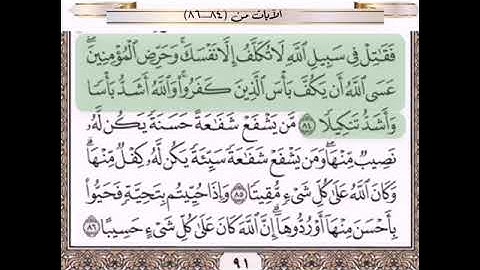 الآيات من (٨٤–٨٦)
فَقَٰتِلْ فِى سَبِيلِ ٱللَّهِ لَا تُكَلَّفُ إِلَّا نَفْسَكَ ۚ وَحَرِّضِ ٱلْمُؤْمِنِينَ ۖ
عَسَى ٱللَّهُ أَن يَكُفَّ بَأْسَ ٱلَّذِينَ كَفَرُوا۟ ۚ وَٱللَّهُ أَشَدُّ بَأْسًا
وَأَشَدُّ تَنكِيلًا ٨٤ مَّن يَشْفَعْ شَفَٰعَةً حَسَنَةً يَكُن لَّهُۥ
نَصِيبٌ مِّنْهَا ۖ وَمَن يَشْفَعْ شَفَٰعَةً سَيِّئَةً يَكُن لَّهُۥ كِفْلٌ مِّنْهَا ۗ
وَكَانَ ٱللَّهُ عَلَىٰ كُلِّ شَىْءٍ مُّقِيتًا ٨٥ وَإِذَا حُيِّيتُم بِتَحِيَّةٍ فَحَيُّوا۟
بِأَحْسَنَ مِنْهَآ أَوْ رُدُّوهَآ ۗ إِنَّ ٱللَّهَ كَانَ عَلَىٰ كُلِّ شَىْءٍ حَسِيبًا ٨٦
٩١